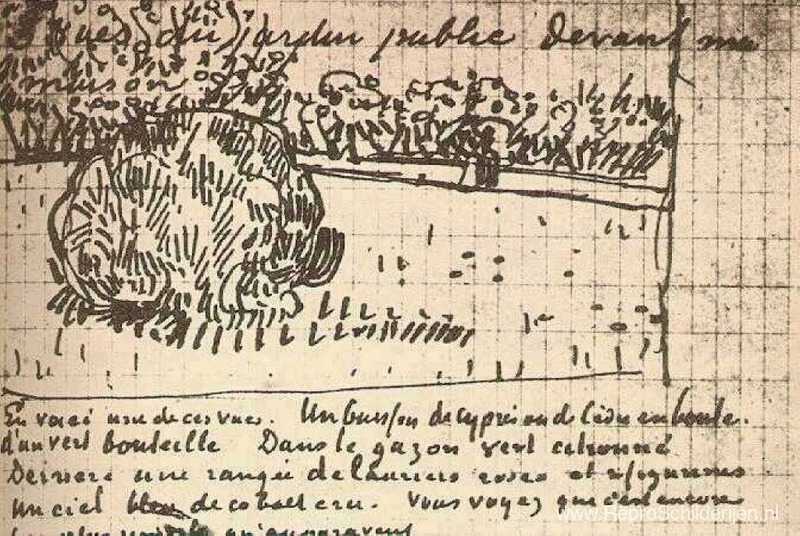 vues du jardin public devant ma
maison
En voici une de ces vues. Un buisson de cyprès rond de cèdre en boule.
d'un vert bouteille Dans le gazon vert citronné
Derrière une rangée de lauriers roses et 2 figurines
un ciel bleu de cobalt cru. Vous voyez que c'est encore
plus simple qu'auparavant
www.ReproSchilderijen.nl